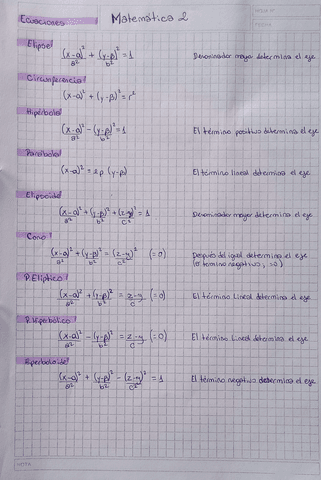 Ecuaciones Matemática 2
Elipse
(x-α)²/a² + (y-β)²/b² = 1 Denominador mayor determina el eje
Circunferencia
(x-α)² + (y-β)² = r²
Hipérbola
(x-α)²/a² - (y-β)²/b² = 1 El término positivo determina el eje
Parábola
(x-α)² = 2p (y-β) El término lineal determina el eje
Elipsoide
(x-α)²/a² + (y-β)²/b² + (z-γ)²/c² = 1 Denominador mayor determina el eje
Cono
(x-α)²/a² + (y-β)²/b² = (z-γ)²/c² (=0) Después del igual determina el eje
(o termino negativo, =0)
P. Elíptico
(x-α)²/a² + (y-β)²/b² = z-γ/c (=0) El término Lineal determina el eje
P. Hiperbólico
(x-α)²/a² - (y-β)²/b² = z-γ/c (=0) El término Lineal determina el eje
Hiperboloide
(x-α)²/a² + (y-β)²/b² - (z-γ)²/c² = 1 El término negativo determina el eje
NOTA